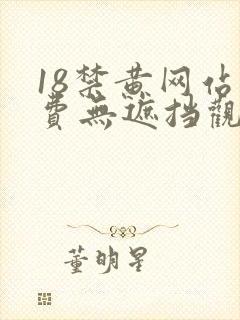 18禁黄网佔
費無遮挡觀
董明星